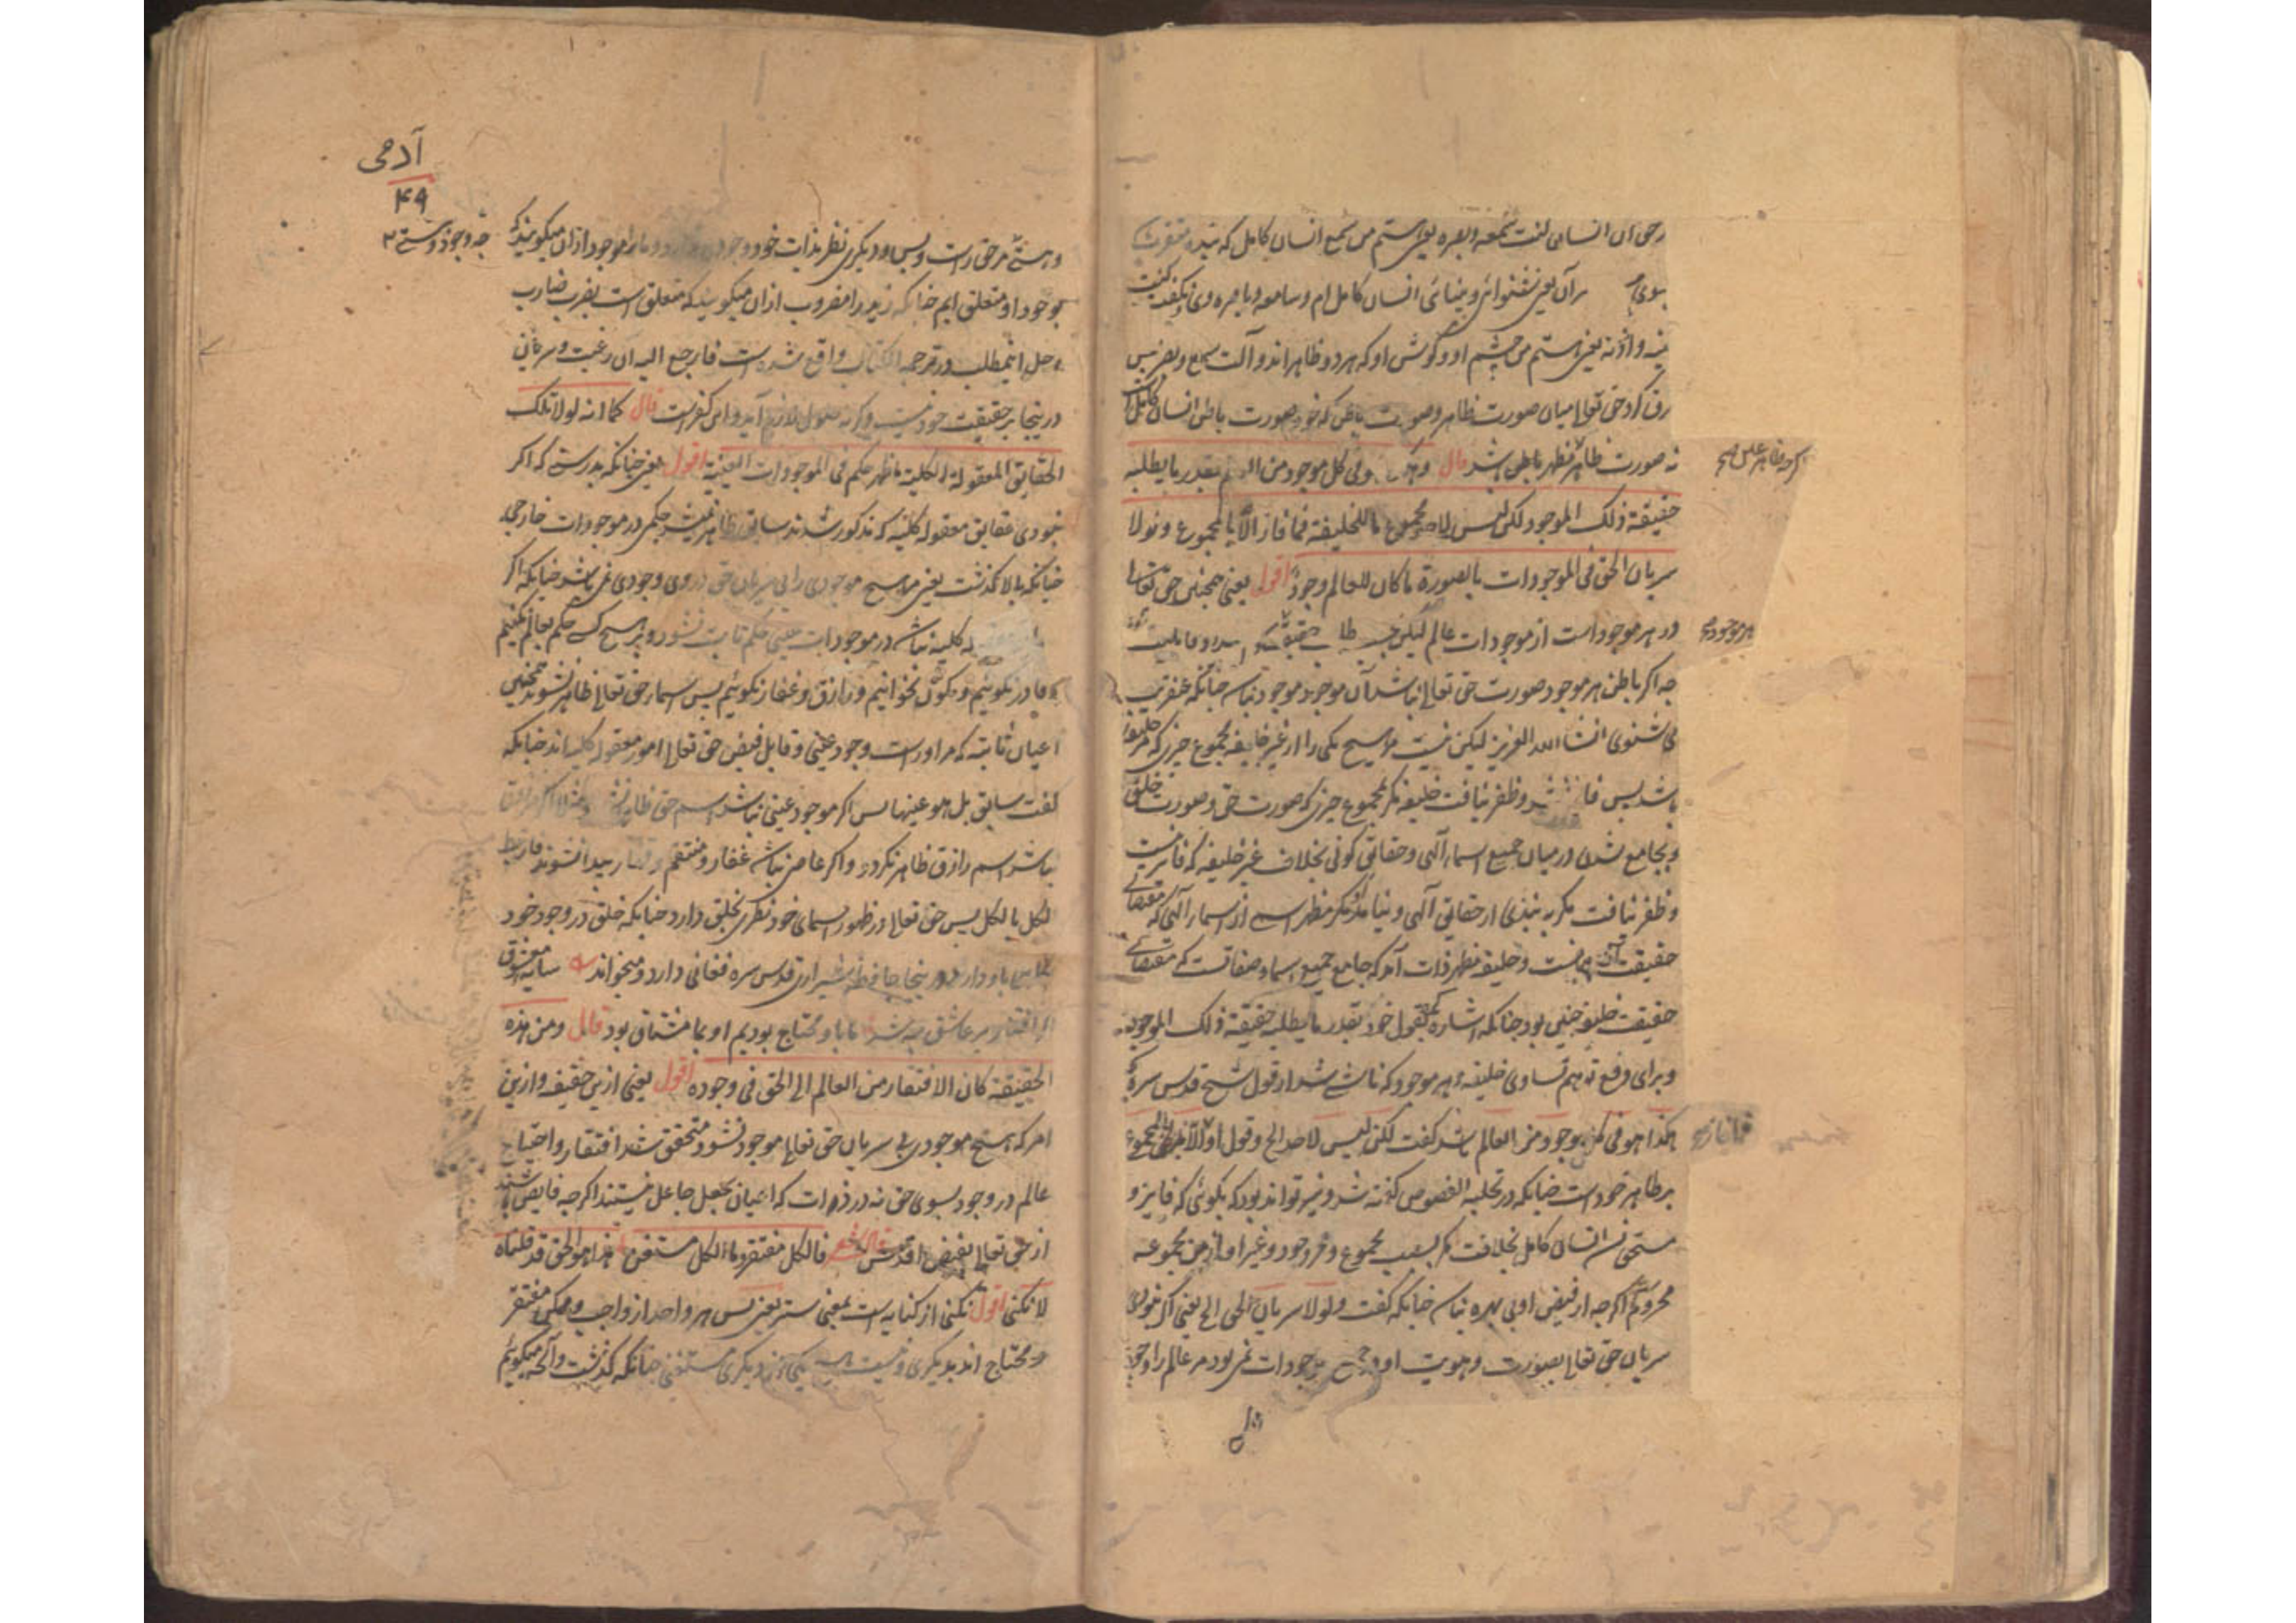 در حق آن انسان کنت سمعه وبصره یعنی هستم من سمع انسان کامل که بنده متقرب
بر آن یعنی شنوائی و بینائی انسان کامل ام و سامعه و باصره وی نکفت کنت
عینه واذنه یعنی هستم من چشم او و کوش او که هر دو ظاهر اند و آلت سمع و بصر پس
فرق کرد حق تعالی میان صورت ظاهر و صورت باطن که خود صورت باطن انسان کامل است
نه صورت ظاهر مظهر باطن باشد قال وهکذا هو فی کل موجود من العالم بقدر ما یطلبه
کرچه ظاهر عکس
حقیقة ذلک الموجود لکن لیس لاحد مجموع ما للخلیفة فما فاز الا بالمجموع ولولا
سریان الحق فی الموجودات بالصورة ما کان للعالم وجود اقول یعنی همچنین حق تعالی
در هر موجود است از موجودات عالم لیکن
هر موجود
چه اکر باطن هر موجود صورت حق تعالی نباشد آن موجود موجود نباشد چنانکه عنقریب
می شنوی انشا الله العزیز لیکن نیست هیچ یکی را از غیر خلیفه مجموع چیزی که مر خلیفه را
باشد پس فایز نشد و ظفر نیافت خلیفه مکر بمجموع چیزی که صورت حق و صورت خلق
وبجامع شدن درمیان جمیع اسماء آلهی و حقایق کونی بخلاف غیر خلیفه که فایز نیست
و ظفر نیافت مکر به چیزی از حقایق آلهی و نباشد مکر مظهر اسمی از اسماء آلهی که مقتضای
حقیقت آن چیز است و خلیفه مظهر ذات آمد که جامع جمیع اسما و صفات است که مقتضای
حقیقت خلیفه چنین بود چنانکه اشاره کرد بقول خود بقدر ما یطلبه حقیقة ذلک الموجود
و برای دفع توهم تساوی خلیفه بهر موجود که ناشی شد از قول شیخ قدس سره
هکذا هو فی کل موجود من العالم باشد کفت لکن لیس لاحد الخ و قول او الا بالمجموع
فما فاز
بر ظاهر خود است چنانکه در تحلیه الفصوص کفته شد و نیز تواند بود که بکوئی که فایز و
مستحق نشد انسان کامل بخلافت مکر بسبب مجموع و غیر او ازین مجموعه
محروم اکرچه از فیض او بی بهره نباشد چنانکه کفت ولولا سریان الحق الخ یعنی اکر نبودی
سریان حق تعالی بصورت و هویت او در جمیع موجودات نمی بود مر عالم را وجود
آدمی
۴۹
و هستی مر حق راست و بس و دیکری نظر بذات خود وجود ندارد و ما را موجود ازان میکویند که
چه وجود و هستی
بوجود او متعلق ایم چنانکه زید را مضروب ازان میکویند که متعلق است بضرب ضارب
و حل اینمطلب در ترجمة الکتاب واقع شده است فارجع الیه ان رغبت و سریان
درینجا بر حقیقت خود نیست وکرنه حلول لازم آید و این کفر است قال کما انه لولا تلک
الحقایق المعقولة الکلیة ما ظهر حکم فی الموجودات العینیة اقول یعنی چنانکه بدرستی که اکر
نبودی حقایق معقوله کلیه که مذکور شدند سابق ظاهر نمیشد حکمی در موجودات خارجیه
چنانکه بالا کذشت یعنی هیچ موجودی را بی سریان حق در وی وجودی نمی باشد چنانکه اکر
کلیه نباشد در موجودات عینی حکم ثابت نشود و بر هیچ کس حکم بعالم نکنیم
و قادر نکوئیم و مکون نخوانیم و رازق و غفار نکوئیم پس اسماء حق تعالی ظاهر نشوند همچنین
اعیان ثابته که مر او راست وجود عینی و قابل فیض حق تعالی امور معقوله کلیه اند چنانکه
کفت سابق بل هو عینها پس اکر موجود عینی نباشد اسم حق ظاهر نشود مثلا اکر مرزوق
نباشد اسم رازق ظاهر نکردد و اکر عاصی نباشد غفار و منتقم و قهار پیدا نشوند فارتبط
الکل بالکل پس حق تعالی در ظهور اسمای خود نظری بخلق دارد چنانکه خلق در وجود خود
باو دارد و درینجا حافظ شیرازی قدس سره فغانی دارد و میخواند سایه معشوق
اکر افتاد بر عاشق چه شد ما باو محتاج بودیم او بما مشتاق بود قال ومن هذه
الحقیقة کان الافتقار من العالم الی الحق فی وجوده اقول یعنی ازین حقیقة و ازین
امر که هیچ موجودی بی سریان حق تعالی موجود نشود متحقق شد افتقار و احتیاج
عالم در وجود بسوی حق نه در ذوات که اعیان بجعل جاعل نیستند اکرچه فایض باشند
از حق تعالی بفیض اقدس شعر فالکل مفتقر ما الکل مستغن هذا هو الحق قد قلناه
لا نکنی اقول نکنی از کنایه است بمعنی ستر یعنی پس هر واحد از واجب و ممکن مفتقر
و محتاج اند بدیکری و نیست یکی از دیکری مستغنی چنانکه کذشت و آنچه میکوئیم